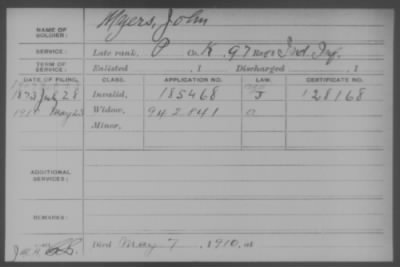 NAME OF SOLDIER: Myers, John
SERVICE: Late rank, P Co. K, 97 Reg't Ind. Inf.
TERM OF SERVICE: Enlisted , 1 Discharged , 1
DATE OF FILING. CLASS. APPLICATION NO. LAW. CERTIFICATE NO.
1873 July 28 Invalid, 185468 J 128168
May 23 Widow, 942841
Minor,
ADDITIONAL SERVICES:
REMARKS:
Died May 7, 1910, at